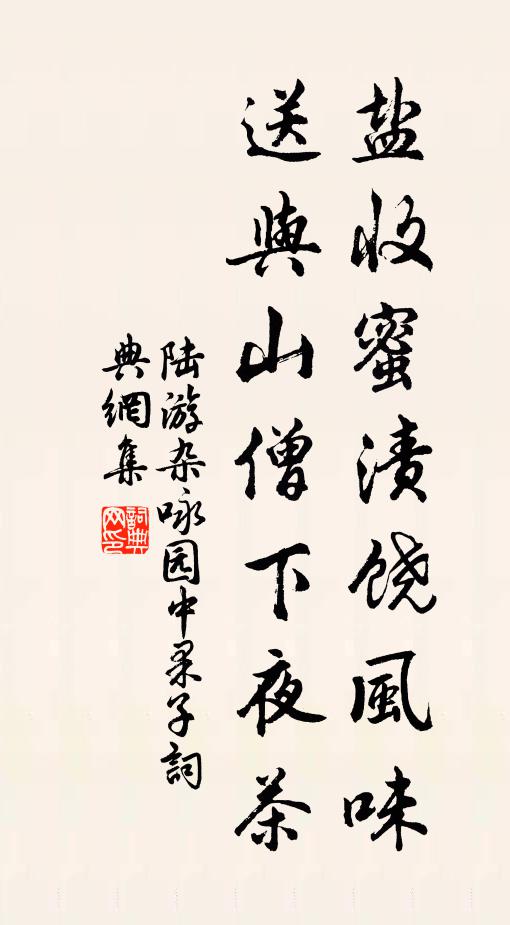 盐收蜜渍饶風味
送與山僧下夜茶
陆游杂咏园中果子詞
典網集
詞典网印